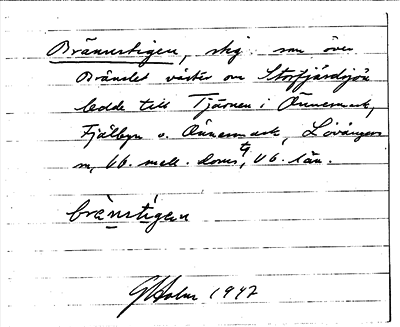 Brännstigen, stig som över
Brånslet väster om Storfjärdsjön
ledde till Tjärnen i Önnesmark,
Fjälbyn o. Önnesmark, Lövångers
sn, Vb. mell. kontr., Vb. län.
brä̀nstigen
G Holm 1942